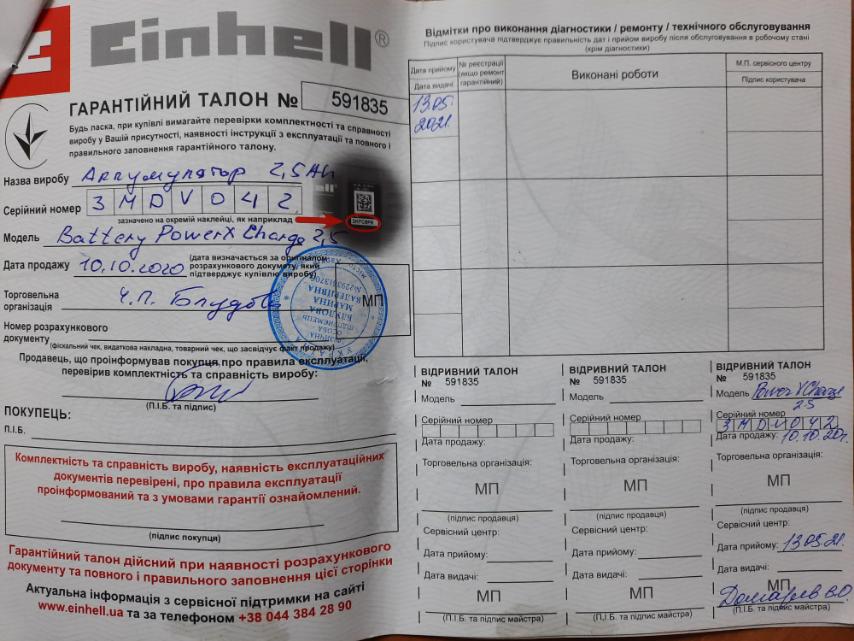 Einhell®
ГАРАНТІЙНИЙ ТАЛОН № 591835
Будь ласка, при купівлі вимагайте перевірки комплектності та справності
виробу у Вашій присутності, наявності інструкції з експлуатації та повного і
правильного заповнення гарантійного талону.
Назва виробу Аккумулятор 2,5Ah
Серійний номер 3MDV042
зазначено на окремій наклейці, як наприклад
Модель Battery PowerX Charge 2,5
Дата продажу 10.10.2020 (дата визначається за оригіналом
розрахункового документу, який
підтверджує купівлю виробу)
Торговельна
організація Ч.П. Блудова
МП
Номер розрахункового
документу
(фіскальний чек, видаткова накладна, товарний чек, що засвідчує факт продажу)
Продавець, що проінформував покупця про правила експлуатації,
перевірив комплектність та справність виробу:
(П.І.Б. та підпис)
ПОКУПЕЦЬ:
П.І.Б.
Комплектність та справність виробу, наявність експлуатаційних
документів перевірені, про правила експлуатації
проінформований та з умовами гарантії ознайомлений.
(підпис покупця)
Гарантійний талон дійсний при наявності розрахункового
документу та повного і правильного заповнення цієї сторінки
Актуальна інформація з сервісної підтримки на сайті
www.einhell.ua та за телефоном +38 044 384 28 90
Відмітки про виконання діагностики / ремонту / технічного обслуговування
Підпис користувача підтверджує правильність дат і прийом виробу після обслуговування в робочому стані
(крім діагностики)
Дата прийому
Дата видачі
№ реєстрації
(якщо ремонт
гарантійний)
Виконані роботи
М.П. сервісного центру
Підпис користувача
13.05.
2021.
ВІДРИВНИЙ ТАЛОН
№ 591835
Модель
Серійний номер
Дата продажу:
Торговельна організація:
МП
(підпис продавця)
Сервісний центр:
Дата прийому:
Дата видачі:
МП
(П.І.Б. та підпис майстра)
ВІДРИВНИЙ ТАЛОН
№ 591835
Модель
Серійний номер
Дата продажу:
Торговельна організація:
МП
(підпис продавця)
Сервісний центр:
Дата прийому:
Дата видачі:
МП
(П.І.Б. та підпис майстра)
ВІДРИВНИЙ ТАЛОН
№ 591835
Модель Power X Charge
2,5
Серійний номер
3MDV042
Дата продажу: 10.10.20г.
Торговельна організація:
МП
(підпис продавця)
Сервісний центр:
Дата прийому: 13.05.21.
Дата видачі:
МП
(П.І.Б. та підпис майстра)